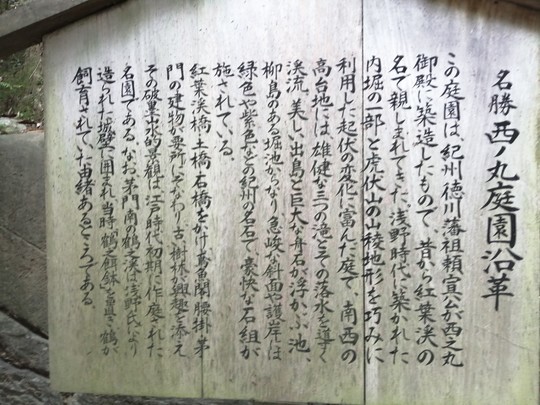 名勝 西ノ丸庭園沿革
この庭園は、紀州徳川藩祖頼宣公が西之丸
御殿に築造したもので、昔から紅葉渓の
名で親しまれてきた。浅野時代に築かれた
内堀の一部と虎伏山の山稜地形を巧みに
利用した起伏の変化に富んだ庭で、南西の
高台地には、雄健な三つの滝とその落水を導く
渓流、美しい出島と巨大な舟石が浮かぶ池、
柳島のある堀池からなり、急峻な斜面や護岸は
緑色や紫色などの紀州の名石で、豪快な石組が
施されている。
紅葉渓橋、土橋、石橋をかけ、鳶魚閣、腰掛、茅
門の建物が要所にそなわり、古い樹林が興趣を添え
その破墨山水的景観は江戸時代初期に作庭された
名園である。なお茅門南の鶴の渓は浅野氏により
造られた城壁に囲まれ当時「鶴の」鶴が
飼育されていた由緒あるところである。